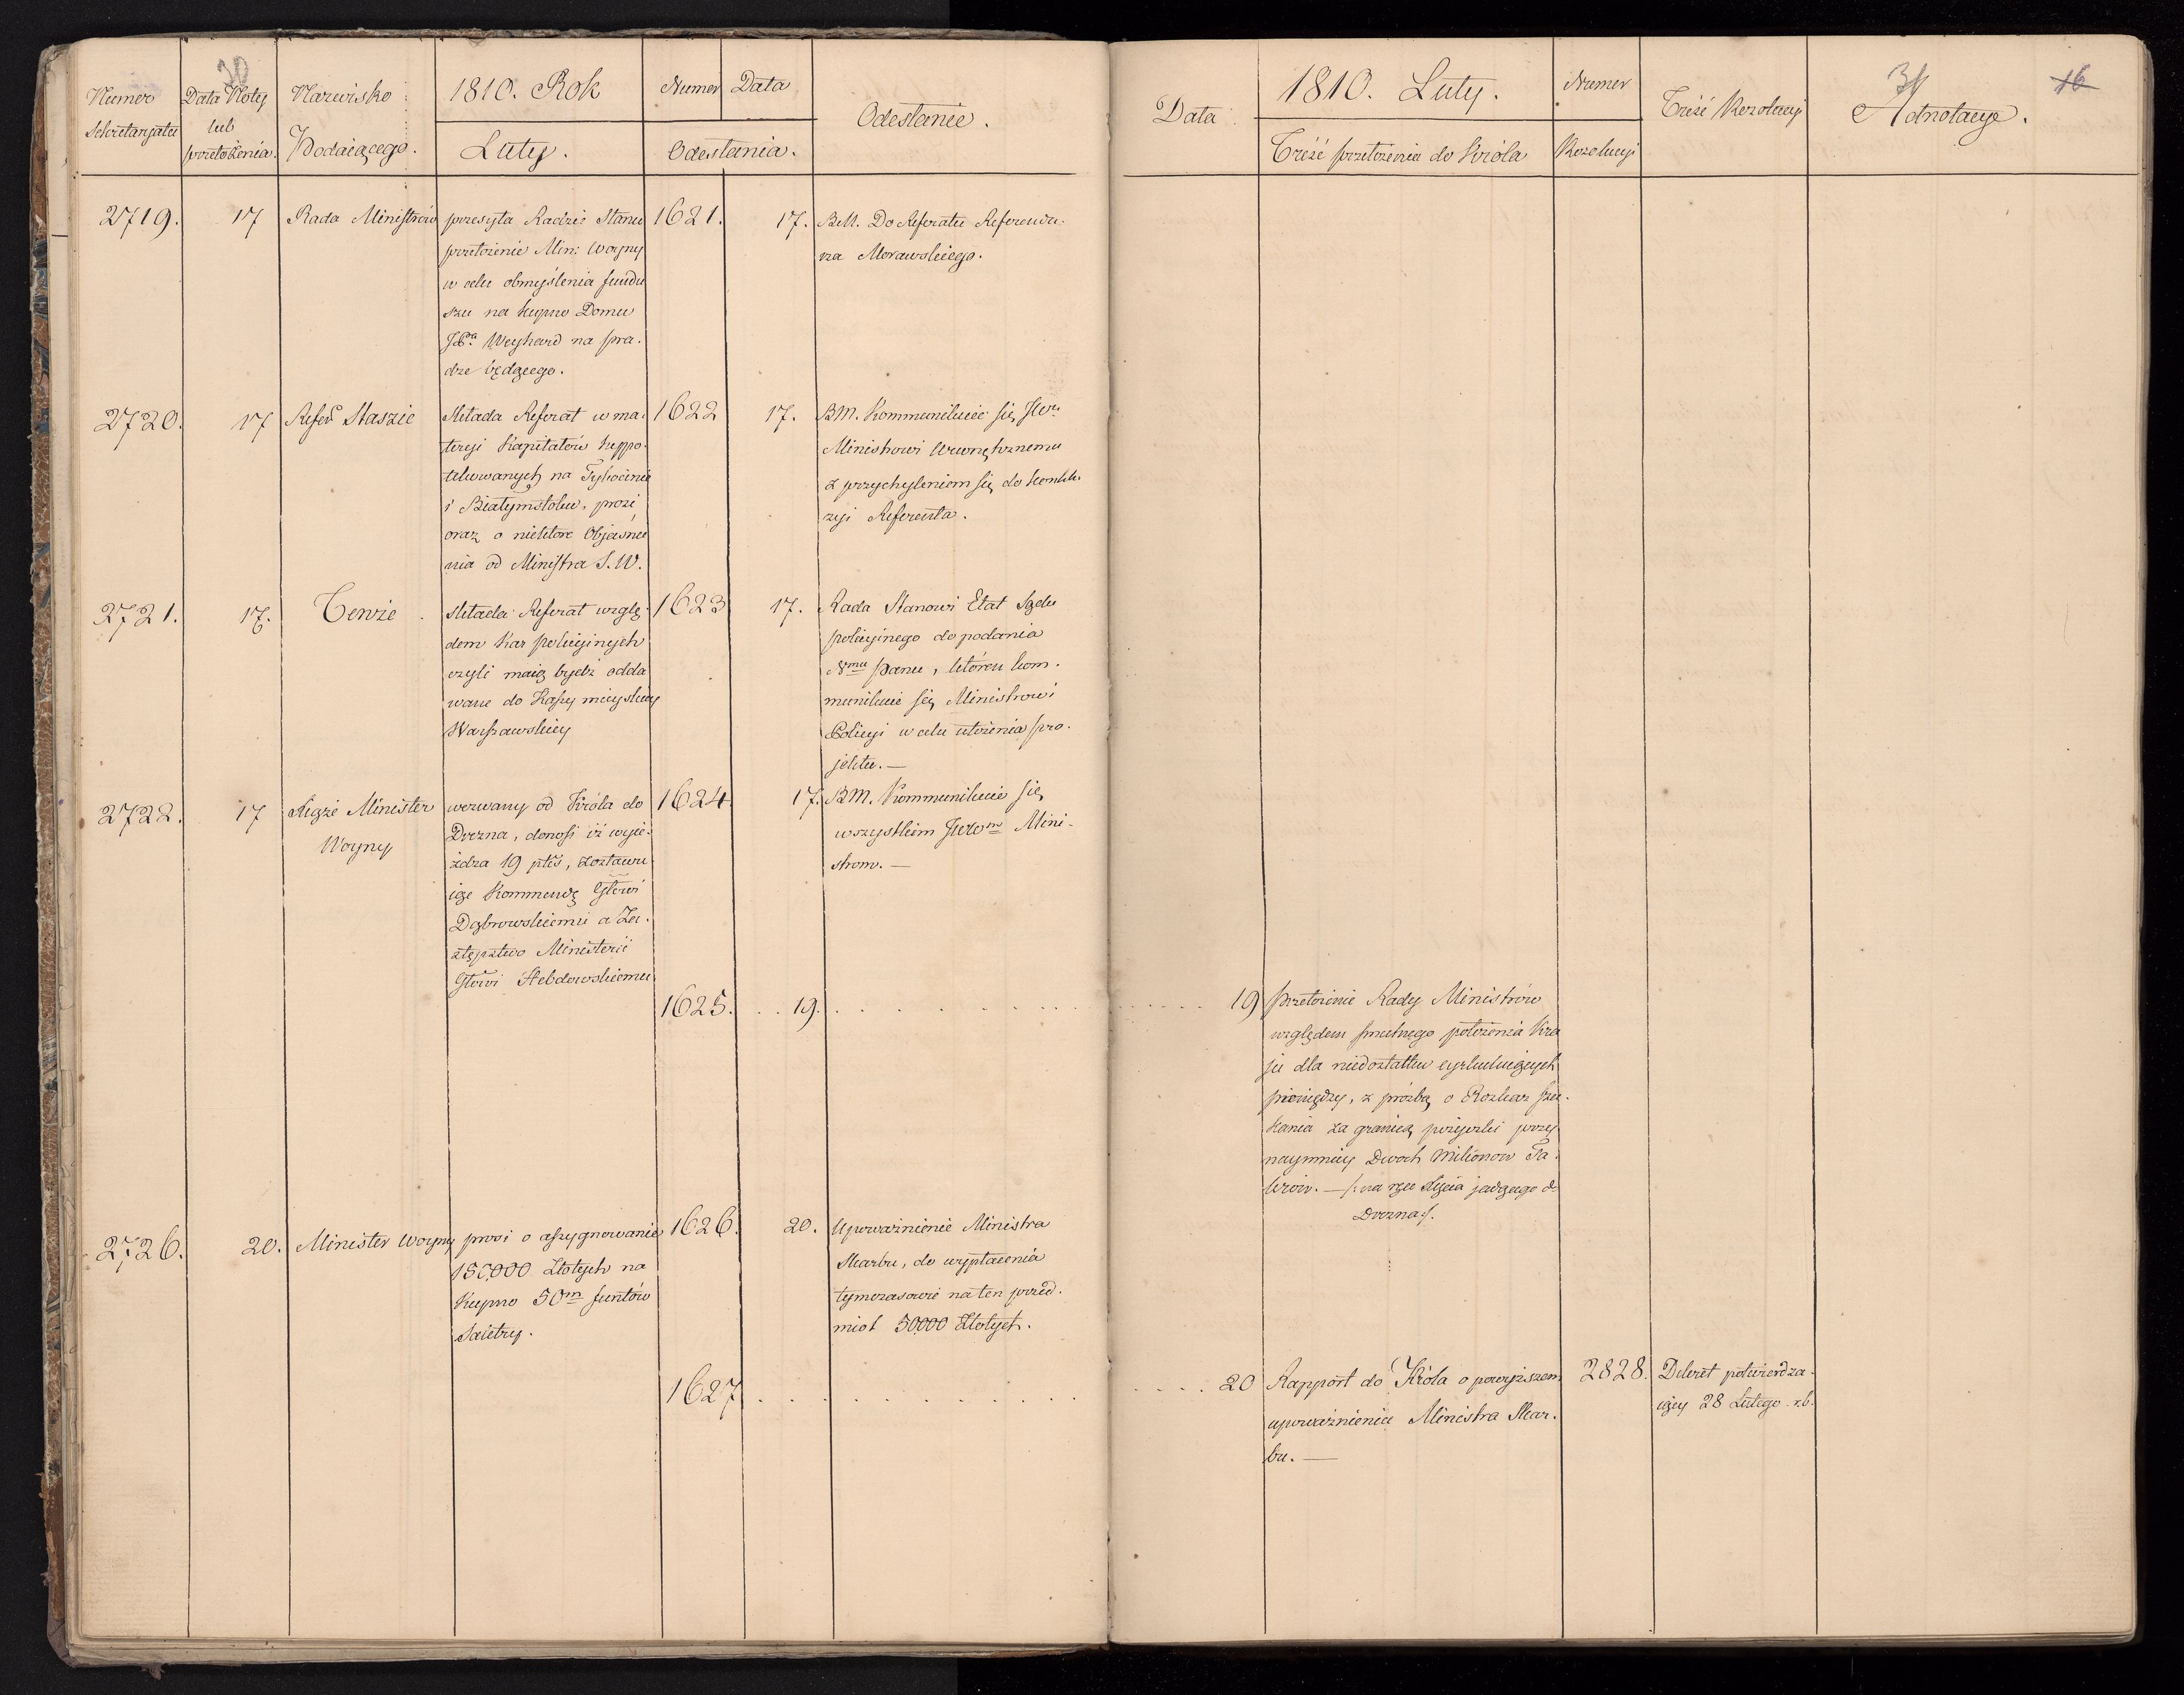 30
Numer
Sekretaryatu
Data Noty
lub
przełożenia.
Nazwisko
Podaiącego.
1810. Rok
Luty.
Numer Data
Odesłania.
Odesłanie.
2719. 17 Rada Ministrów
przesyła Radzie Stanu
przełożenie Min: Woyny
w celu obmyślenia fundu
szu na kupno Domu
Weyhard na pra.
dze będącego.
1621. 17.
BM. Do Referatu Referenda.
rza Morawskiego.
2720. 17 Refer Staszic
składa Referat w ma.
teryi Kapitałów hyppo.
tekowanych na Tykocinie
i Białymstoku, prosi
oraz o niektóre Objaśnie
nia od Ministra S. W.
1622 17.
BM. Kommunikuie się JWu
Ministrowi Wewnętrznemu
z przychyleniem się do konklu.
zyi Referenta.
2721. 17. Tenże
składa Referat wzglę.
dem Kar policyinych
czyli maią bydź odda
wane do Kassy mieyskiey
Warszawskiey
1623 17.
Rada Stanowi Etat Sądu
policyinego do podania
Nmu Panu, któren kom.
munikuie się Ministrowi
Policyi w celu ułożenia pro.
jektu. —
2722. 17 Xiąże Minister
Woyny
wezwany od Króla do
Drezna, donosi iż wyie.
żdza 19 pltś, zostawu
iąc Kommendę Głowi
Dąbrowskiemu a Za.
stępstwo Ministerii
Głowi Hebdowskiemu
1624. 17.
BM. Kommunikuie się
wszystkim JWWm Mini-
strom. —
1625. . . 19. . . . . . . . .
2726. 20. Minister Woyny
prosi o assygnowanie
150,000 Złotych na
Kupno 50m funtów
Saletry.
1626. 20.
Upoważnienie Ministra
Skarbu, do wypłacenia
tymczasowie na ten przed.
miot 50,000 Złotych.
1627 . . . . . . . . .
31
16
Data
1810. Luty.
Treść przełożenia do Króla
Numer
Rezolucyi
Treść Rezolucyi
Adnotacye.
. . . . . 19
przełożenie Rady Ministrów
względem smutnego położenia Kra
ju dla niedostatku cyrkuluiących
pieniędzy, z prózbą o Rozkaz szu.
kania za granicą pożyczki przy
naymniey Dwoch Milionow Ta.
lerow. — /: na ręce Xięcia jadącego do
Drezna :/.
. . . . 20
Rapport do Króla o powyższem
upoważnieniu Ministra Skar.
bu. —
2828.
Dekret potwierdza.
iący 28 Lutego r.b.